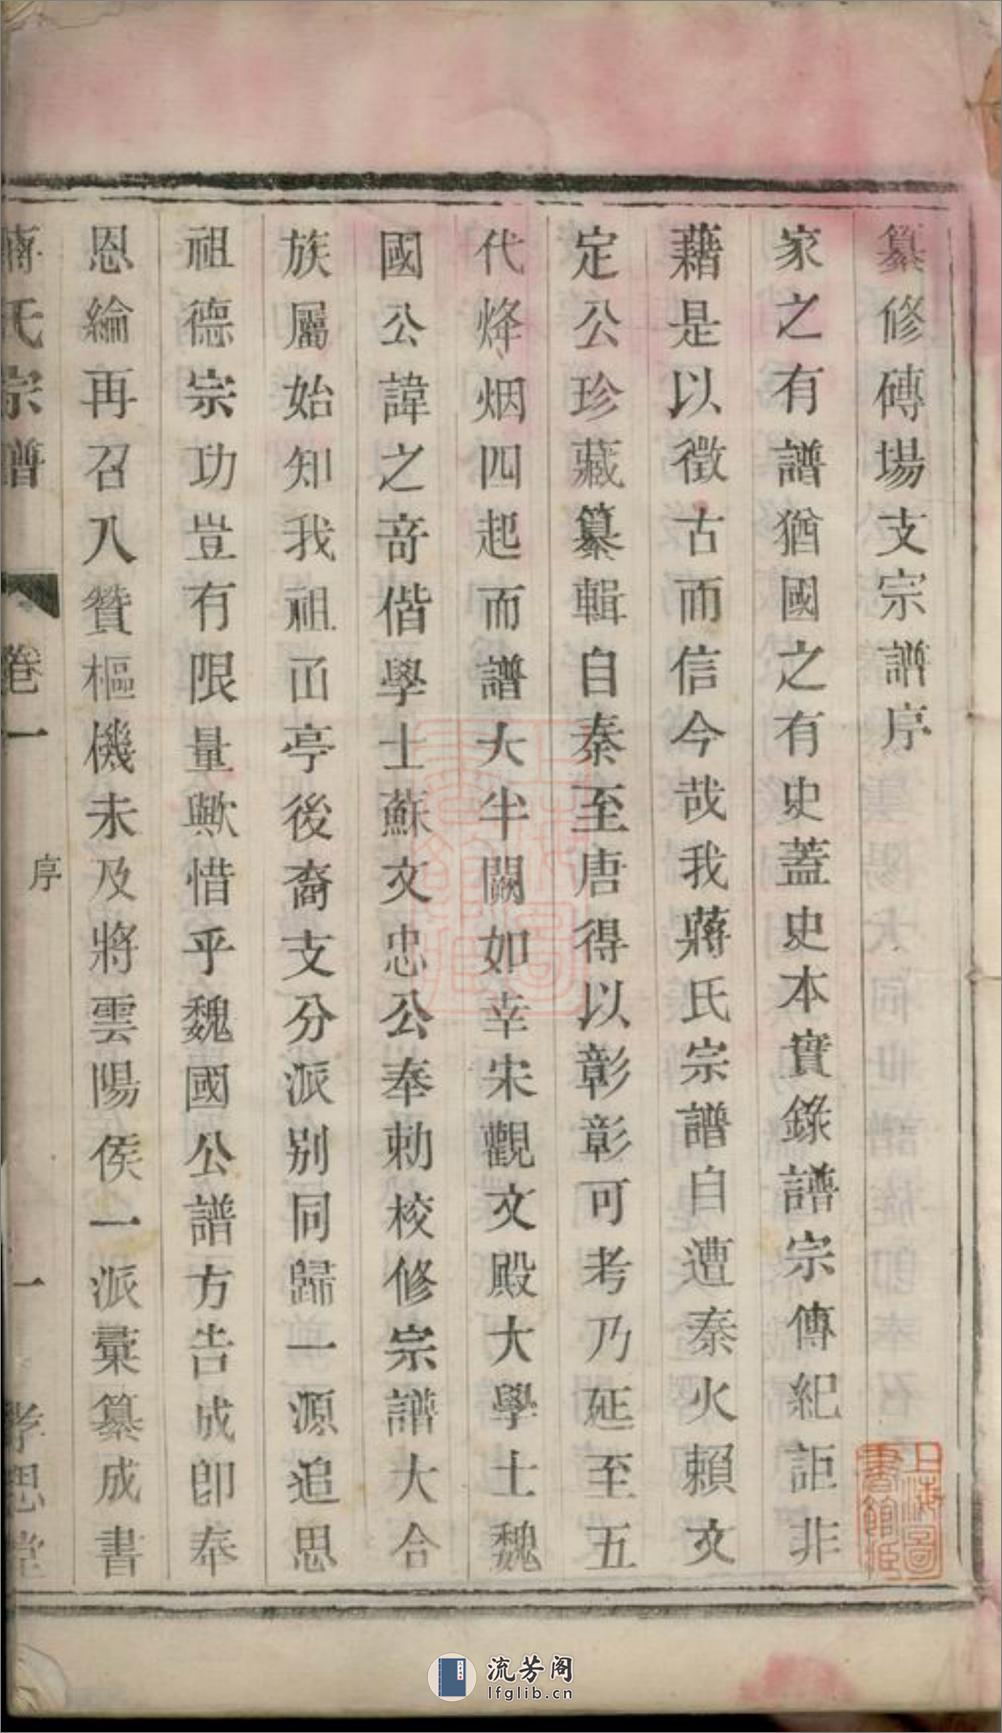 纂修磚場支宗譜序
家之有譜猶國之有史蓋史本實錄譜宗傳紀詎非
藉是以徵古而信今哉我蔣氏宗譜自遭秦火賴文
定公珍藏纂輯自秦至唐得以彰彰可考乃延至五
代烽烟四起而譜大半闕如幸宋觀文殿大學士魏
國公諱之奇偕學士蘇文忠公奉勅校修宗譜大合
族屬始知我祖㓊亭後裔支分派别同歸一源追思
祖德宗功豈有限量歟惜乎魏國公譜方告成卽奉
恩綸再召入贊樞機未及將雲陽侯一派彙纂成書
蔣氏宗譜 卷一 序 一 孝思堂
上海圖書館藏
流芳阁
lfglib.cn